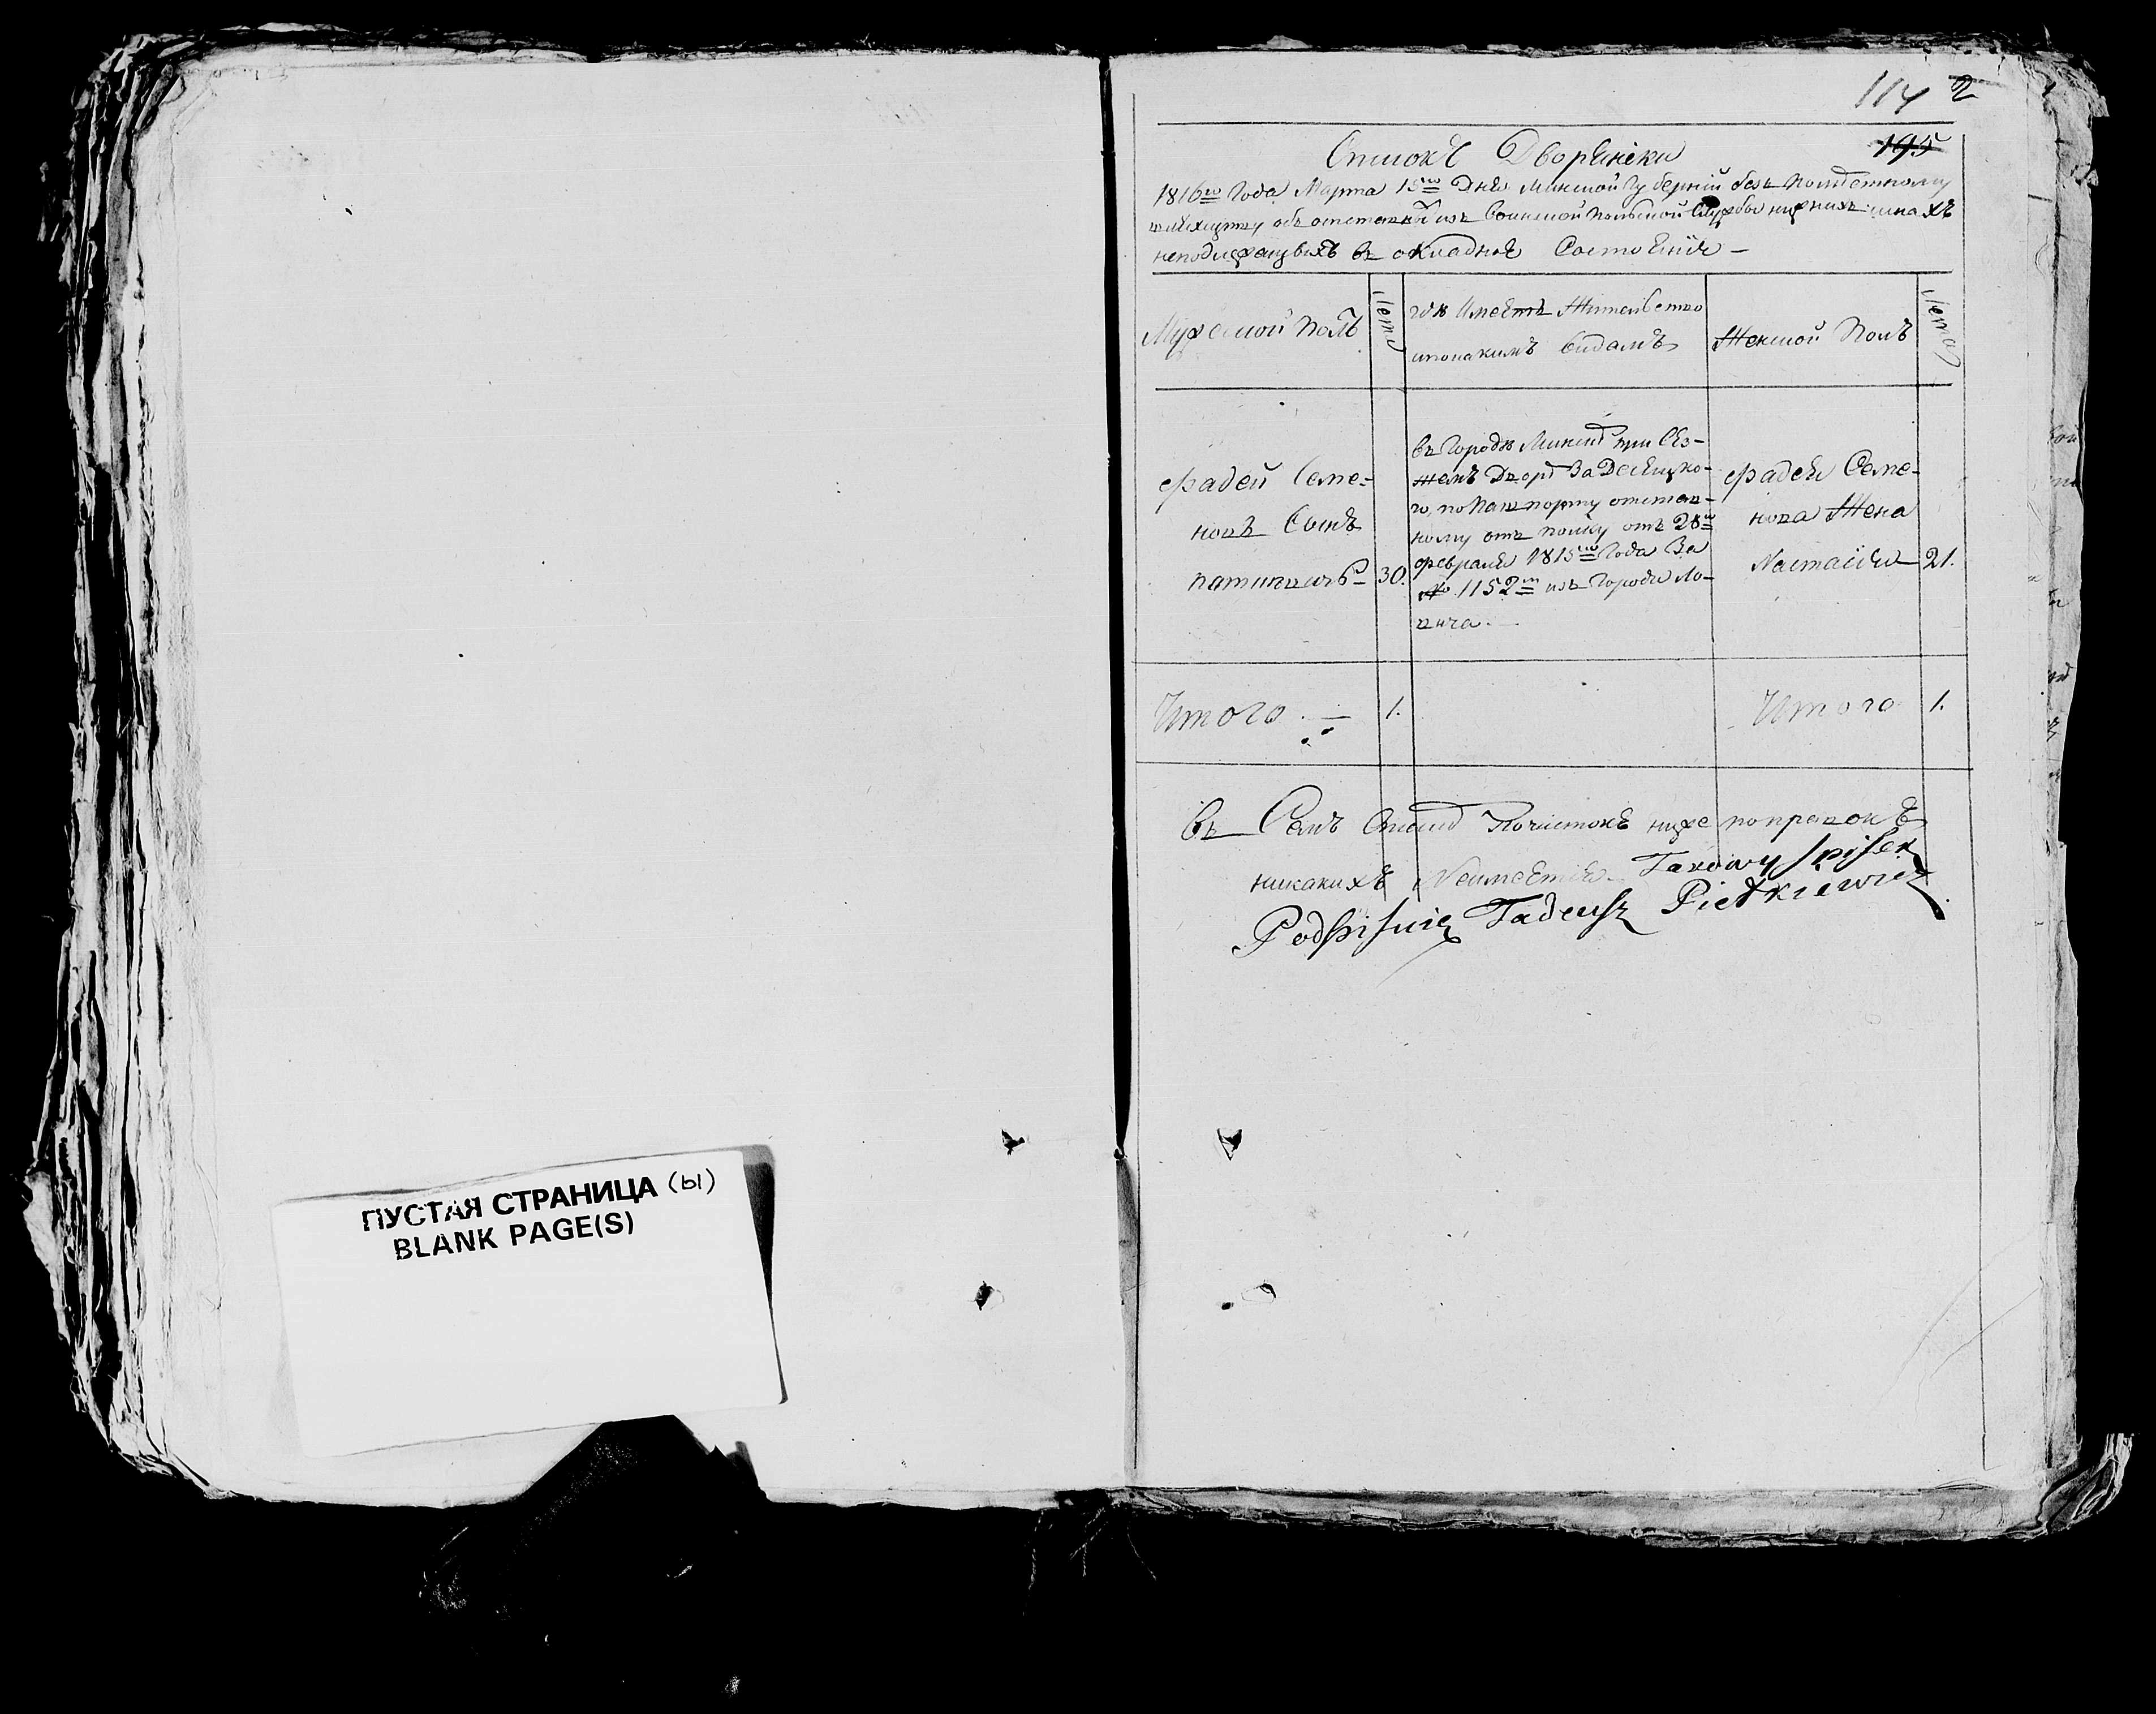 114 2
195
Списокъ Дворянски
1816го Года Марта 15го Дня Минской Губерніи безъ поместному
шляхцицу объ отставны изъ Воинской польской Службы нижнихъ чинахъ
неподлежащыхъ въ окладное Состояніе —
Мужеской Полъ
Лета
где Имеетъ Жительство
ипокакимъ видамъ
Женской Полъ
Лета
Фадей Семе-
новъ Сынъ
30.
въ Городе Минске при
го, по Пашпорту отстав-
ному отъ полку отъ 28го
февраля 1815го Года За
№ 1152м изъ Города Ло-
вича. —
Фадея Семе-
нова Жена
Настасія 21.
Итого . — 1.
Итого 1.
Въ Семъ Списке Почистокъ ниже поправокъ
никакихъ Неиместся — Takowy Spisek
Podpisuię Tadeusz Pietkiewicz
ПУСТАЯ СТРАНИЦА (Ы)
BLANK PAGE(S)